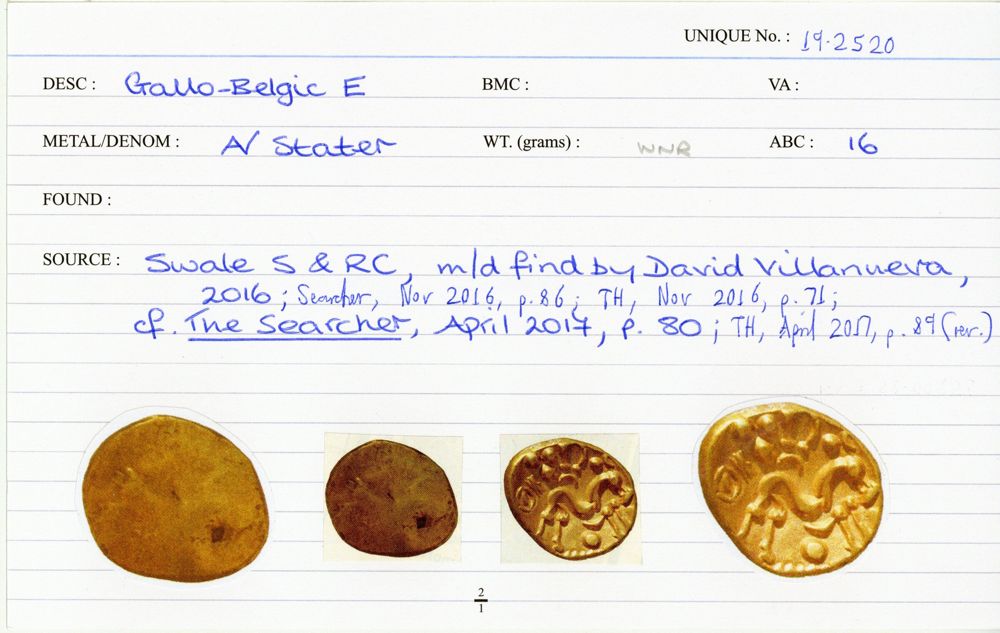 UNIQUE No. : 19.2520
DESC : Gallo-Belgic E BMC : VA :
METAL/DENOM : A/ Stater WT. (grams) : WNR ABC : 16
FOUND :
SOURCE : Swale S & RC, m/d find by David Villanueva,
2016; Searcher, Nov 2016, p.86; TH, Nov 2016, p.71;
cf. The Searcher, April 2017, p. 80; TH, April 2017, p. 89 (rev.)
2
1